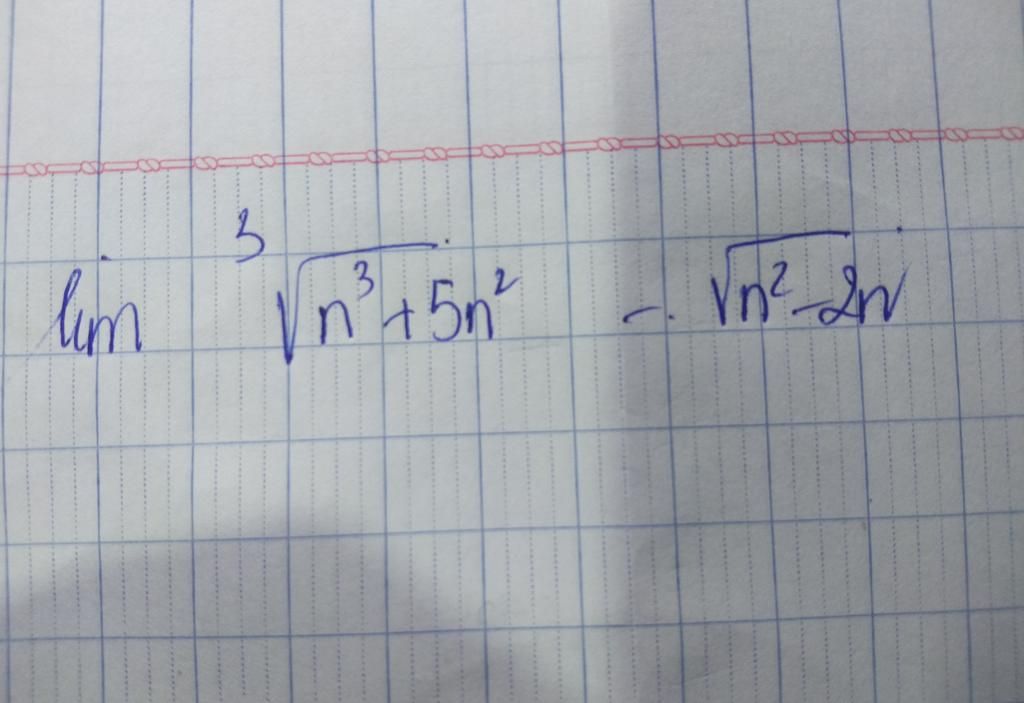 lim ³√(n³+5n²) - √(n²-2n)